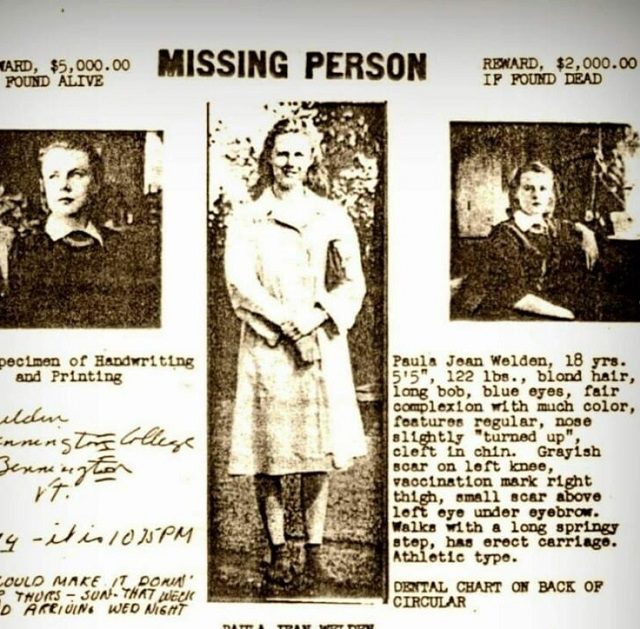 WARD, $5,000.00
FOUND ALIVE
MISSING PERSON
REWARD, $2,000.00
IF FOUND DEAD
pecimen of Handwriting
and Printing
elden
nnington College
Bennington
VT.
- it is 10 25 PM
OULD MAKE IT DOWN
THURS - SUN. THAT WEEK
D ARRIVING WED NIGHT
Paula Jean Welden, 18 yrs.
5'5", 122 lbs., blond hair,
long bob, blue eyes, fair
complexion with much color,
features regular, nose
slightly "turned up",
cleft in chin. Grayish
scar on left knee,
vaccination mark right
thigh, small scar above
left eye under eyebrow.
Walks with a long springy
step, has erect carriage.
Athletic type.
DENTAL CHART ON BACK OF
CIRCULAR
PAULA JEAN WELDEN